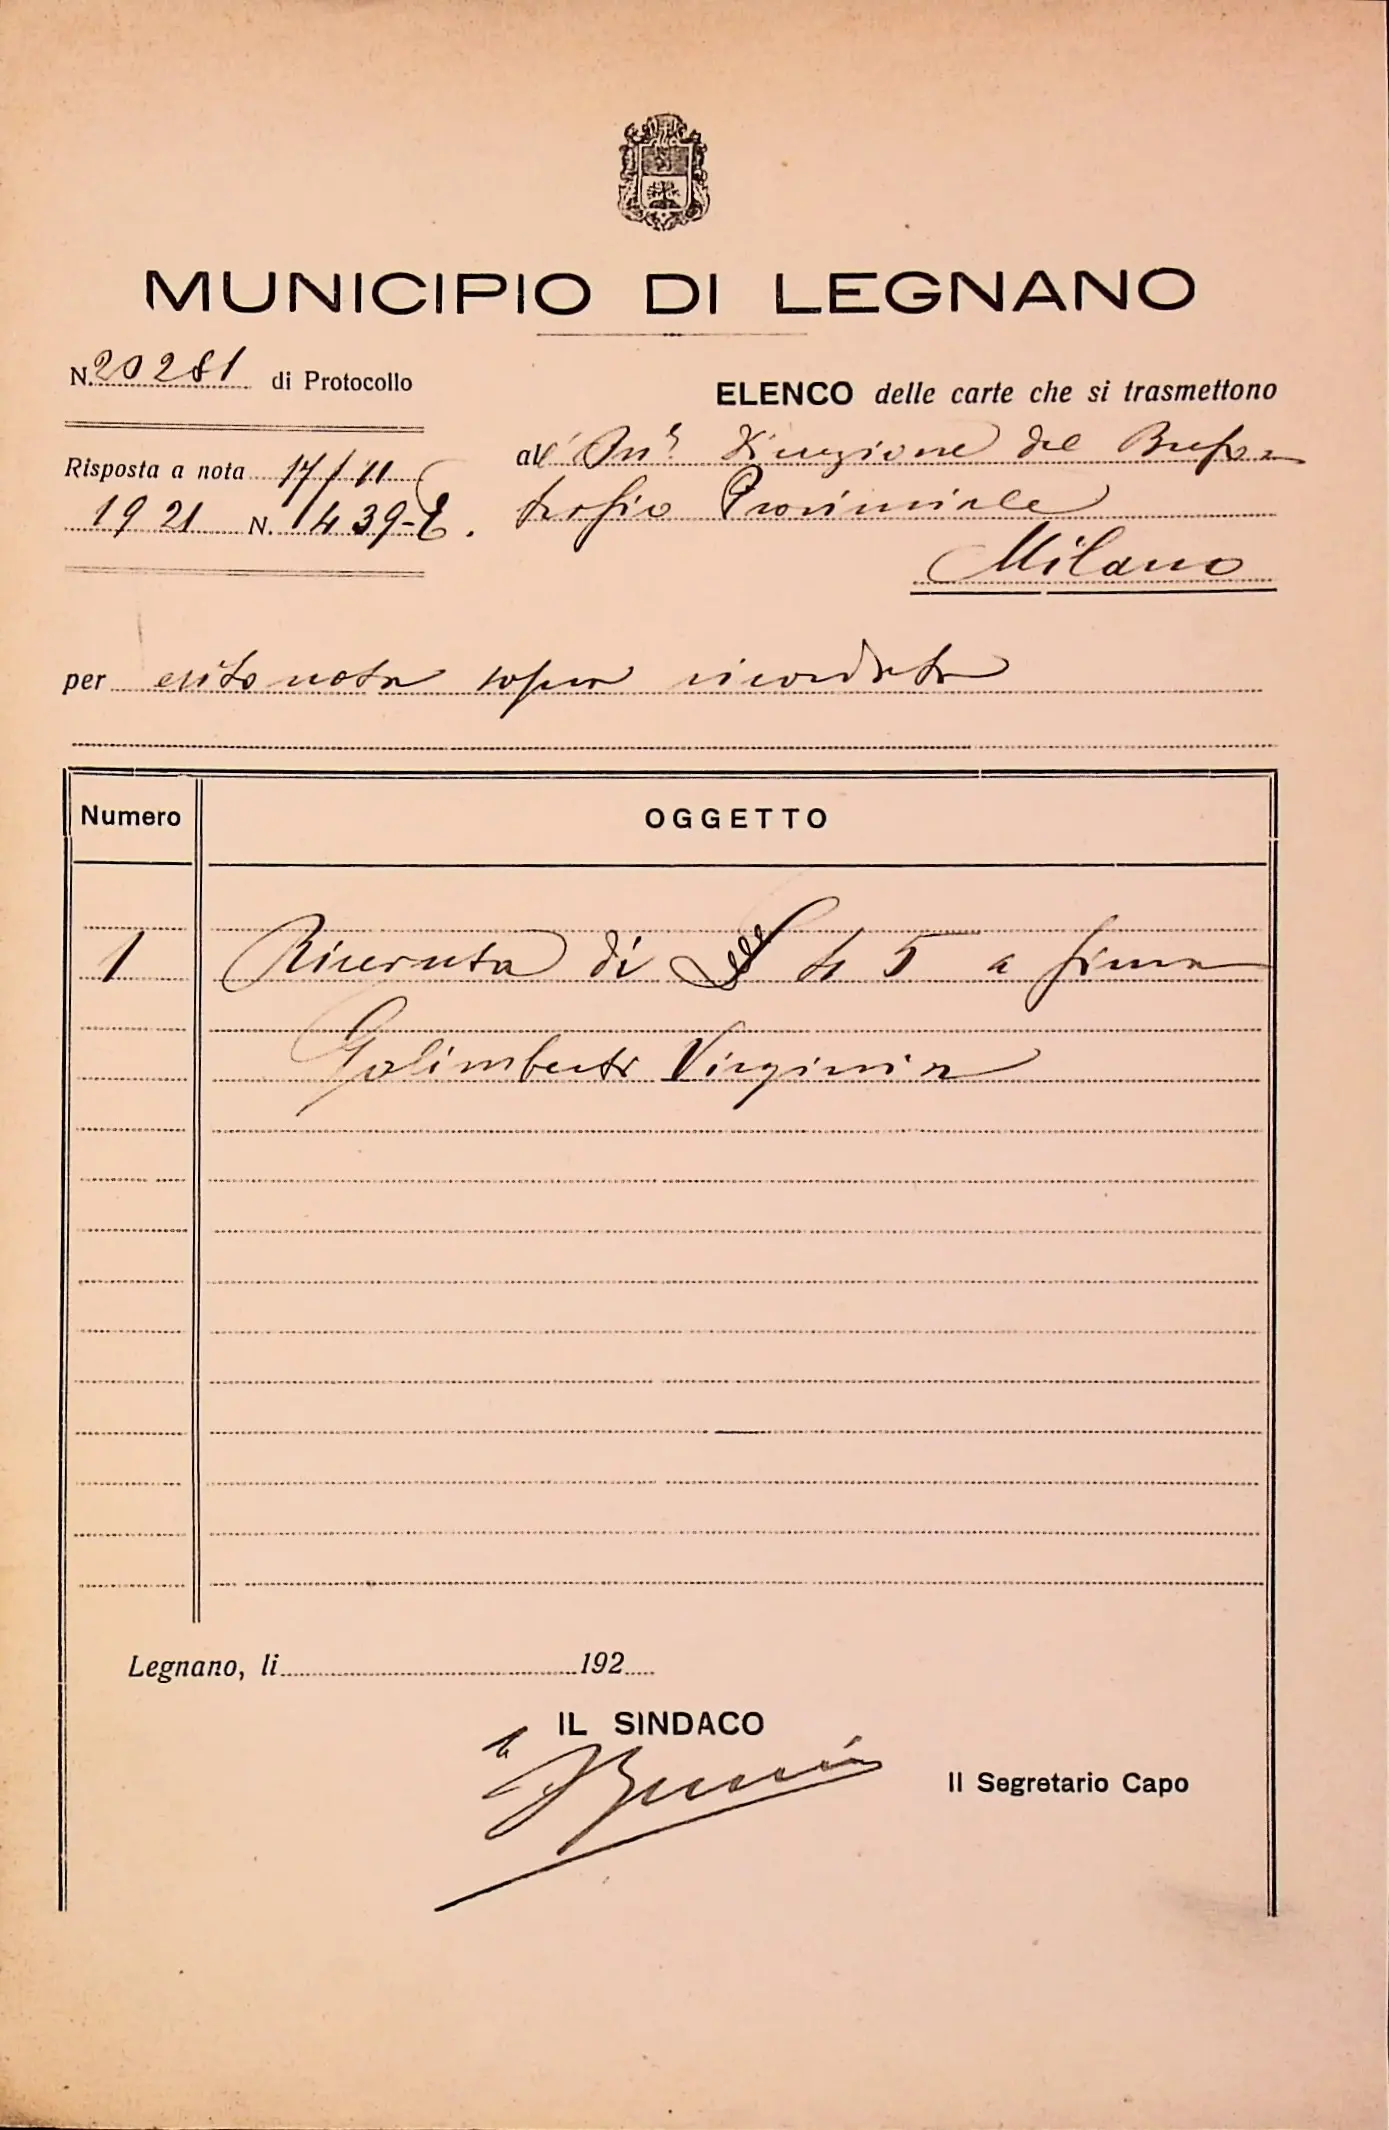 MUNICIPIO DI LEGNANO
N. 20281 di Protocollo
ELENCO delle carte che si trasmettono
Risposta a nota 17/11
1921 N. 1439-E.
all' On. Direzione del Brefo-
trofio Provinciale
Milano
per esito nota sopra ricordata
Numero OGGETTO
1 Ricevuta di L 45 a firma
Galimberti Virginia
Legnano, li 192
IL SINDACO
Il Segretario Capo